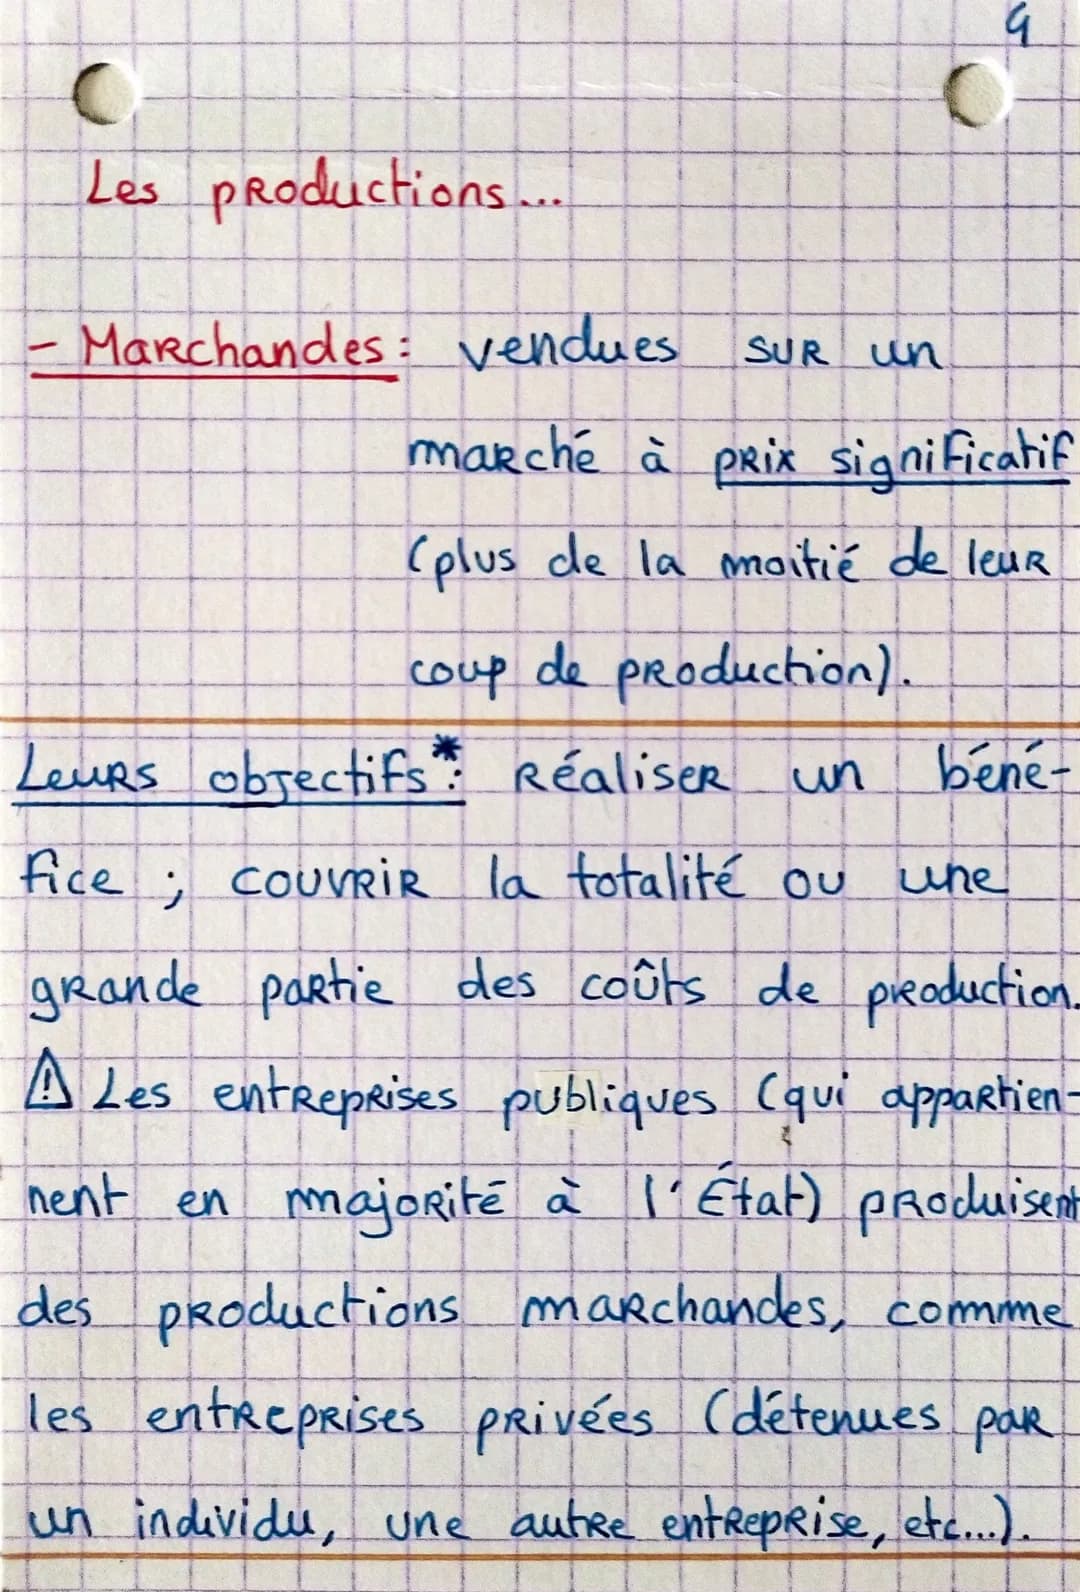 4
Les productions...
- Marchandes : vendues sur un
marché à prix significatif
(plus de la moitié de leur
coup de production).
Leurs objectifs* : Réaliser un béné-
fice ; couvrir la totalité ou une
grande partie des coûts de production.
⚠ Les entreprises publiques (qui appartien-
nent en majorité à l'État) produisent
des productions marchandes, comme
les entreprises privées (détenues par
un individu, une autre entreprise, etc...).